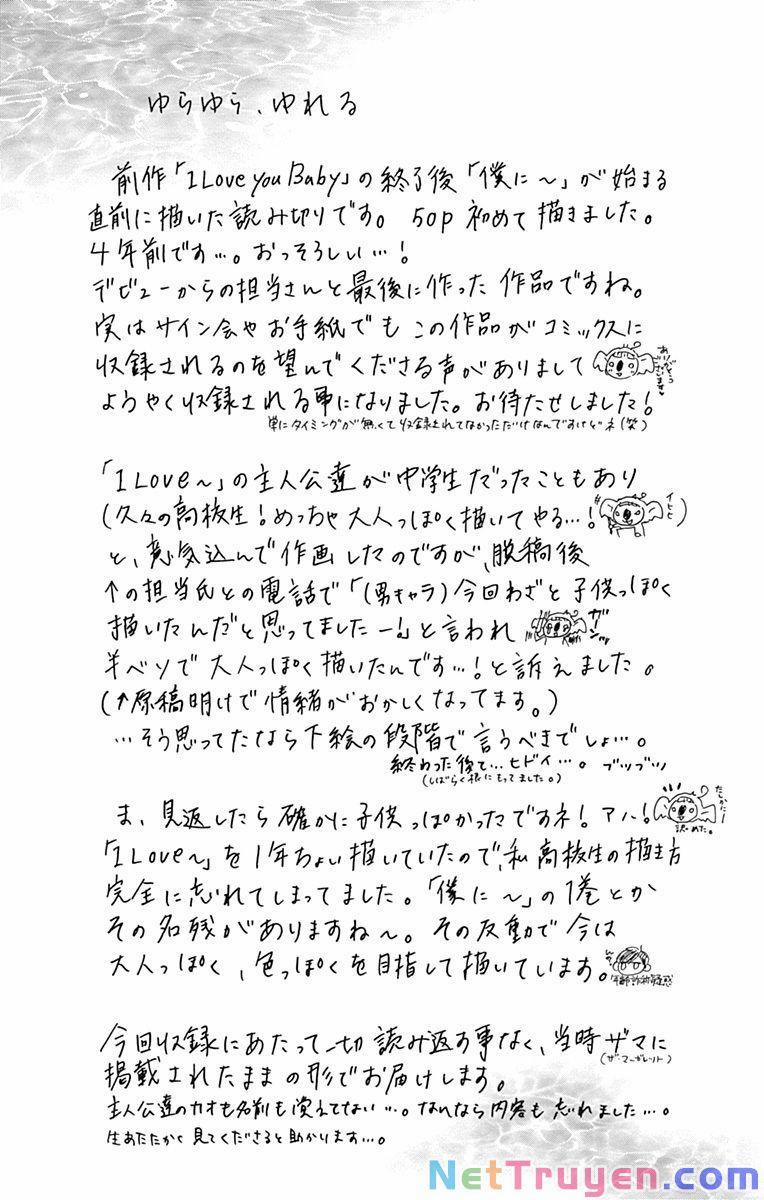 ゆらゆら、ゆれる
前作「I Love you Baby」の終了後「僕に～」が始まる
直前に描いた読み切りです。50p 初めて描きました。
4年前です…。おっそろしい…!
デビューからの担当さんと最後に作った作品ですね。
実はサイン会やお手紙でもこの作品がコミックスに
収録されるのを望んでくださる声がありまして
ありがとうございます
ようやく収録される事になりました。お待たせしました!
単にタイミングが無くて収録されてなかっただけなんですけどネ(笑)
「I Love～」の主人公達が中学生だったこともあり
(久々の高校生!めっちゃ大人っぽく描いてやる…!
イヒヒ)
と、意気込んで作画したのですが、脱稿後
↑の担当氏との電話で「(男キャラ)今回わざと子供っぽく
描いたんだと思ってましたー!」と言われ
ガーン
半ベソで大人っぽく描いたんです…!と訴えました。
(↑原稿明けで情緒がおかしくなってます。)
…そう思ってたなら下絵の段階で言うべきでしょ…。
終わった後で…ヒドイ…。ブツブツ
(しばらく根にもってました。)
ま、見返したら確かに子供っぽかったですネ!アハ!
たしかにー
認めた。
「I Love～」を1年ちょい描いていたので、私高校生の描き方
完全に忘れてしまってました。「僕に～」の1巻とか
その名残がありますね～。その反動で今は
大人っぽく、色っぽくを目指して描いています。
年齢詐称疑惑
今回収録にあたって一切読み返す事なく、当時ザマに
(ザ マーガレット)
掲載されたままの形でお届けします。
主人公達のカオも名前も覚えてない…。なんなら内容も忘れました…。
生あたたかく見てくださると助かります…。
NetTruyen.com